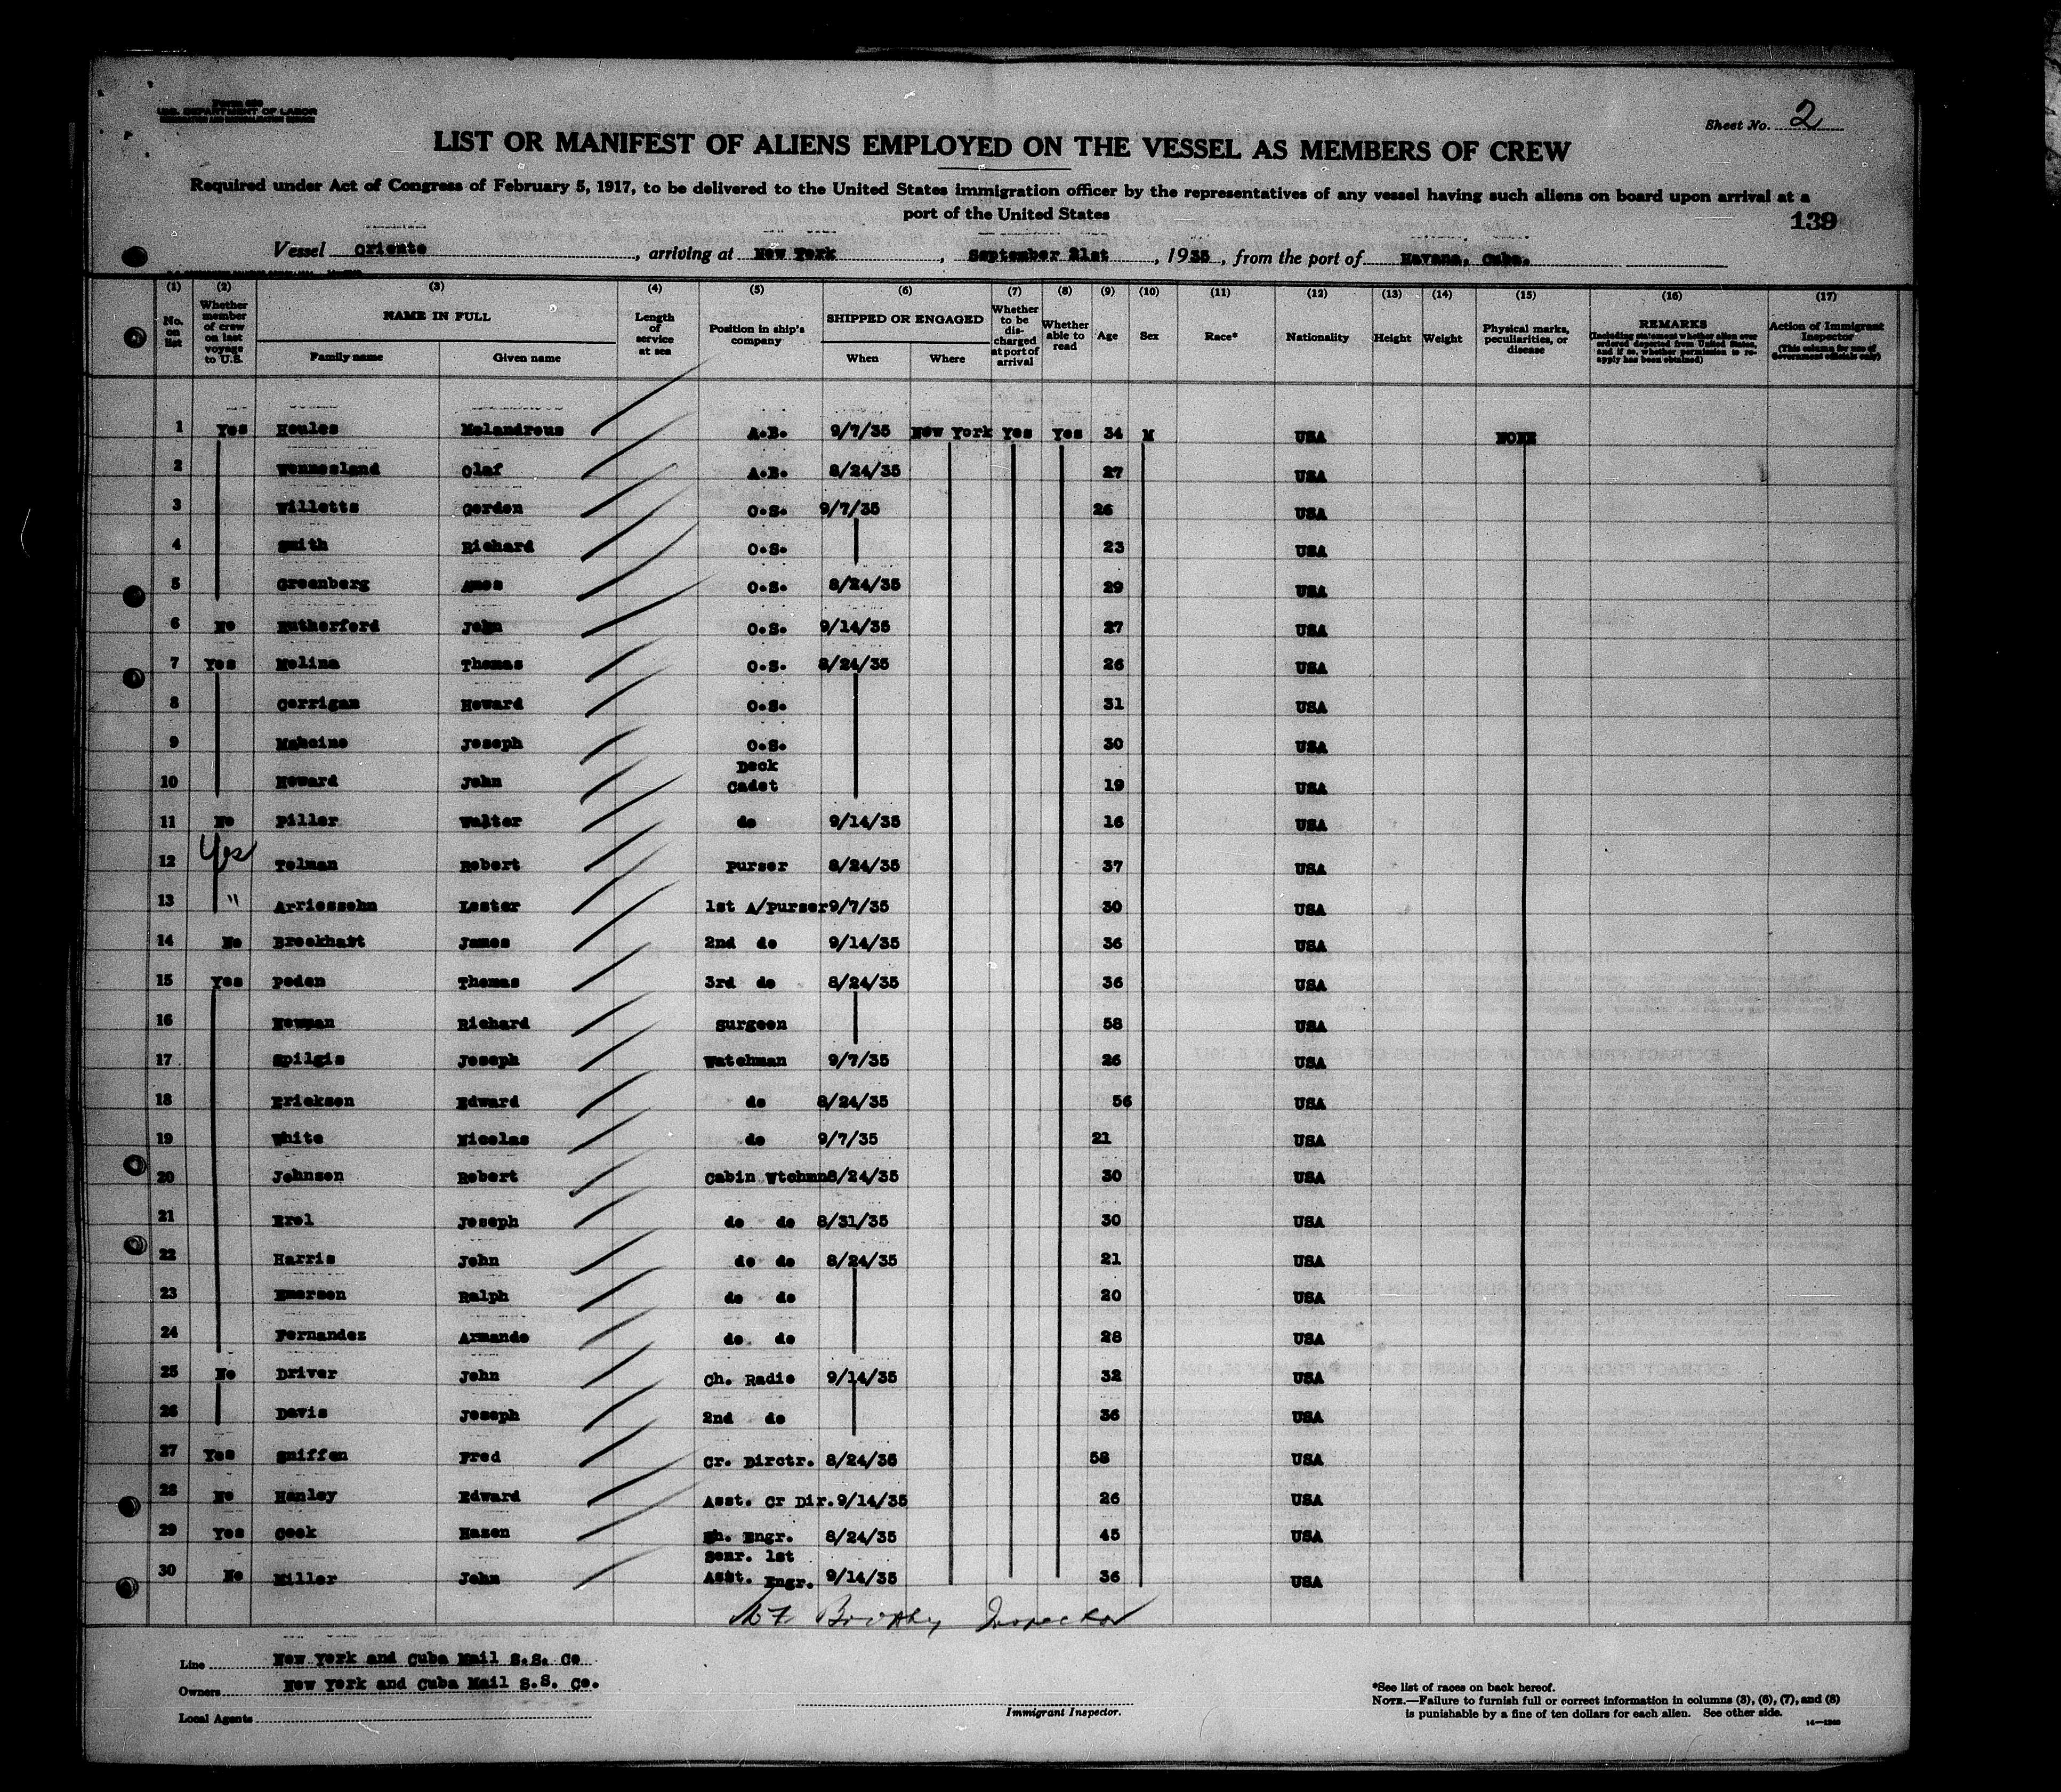 Form 680
U.S. DEPARTMENT OF LABOR
IMMIGRATION AND NATURALIZATION SERVICE
Sheet No. 2
LIST OR MANIFEST OF ALIENS EMPLOYED ON THE VESSEL AS MEMBERS OF CREW
Required under Act of Congress of February 5, 1917, to be delivered to the United States immigration officer by the representatives of any vessel having such aliens on board upon arrival at a
port of the United States
139
Vessel Oriente, arriving at New York, September 21st, 1935, from the port of Havana, Cuba.
(1) (2) (3) (4) (5) (6) (7) (8) (9) (10) (11) (12) (13) (14) (15) (16) (17)
No. on list Whether member of crew on last voyage to U.S. NAME IN FULL Family name Given name Length of service at sea Position in ship's company SHIPPED OR ENGAGED When Where Whether to be discharged at port of arrival Whether able to read Age Sex Race* Nationality Height Weight Physical marks, peculiarities, or disease REMARKS (Including statement whether alien ever ordered deported from United States, and if so, whether permission to reapply has been obtained) Action of Immigrant Inspector (This column for use of Government officials only)
1 Yes Houles Melandrous A.B. 9/7/35 New York Yes Yes 34 M USA NONE
2 Wennesland Olaf A.B. 8/24/35 27 USA
3 Willetts Gordon O.S. 9/7/35 26 USA
4 Smith Richard O.S. 23 USA
5 Greenberg Amos O.S. 8/24/35 29 USA
6 No Rutherford John O.S. 9/14/35 27 USA
7 Yes Molina Thomas O.S. 8/24/35 26 USA
8 Corrigan Howard O.S. 31 USA
9 Maheine Joseph O.S. 30 USA
10 Howard John Deck Cadet 19 USA
11 No Piller Walter do 9/14/35 16 USA
12 Yes Tolman Robert Purser 8/24/35 37 USA
13 " Arriessohn Lester 1st A/Purser 9/7/35 30 USA
14 No Brookhart James 2nd do 9/14/35 36 USA
15 Yes Peden Thomas 3rd do 8/24/35 36 USA
16 Newman Richard Surgeon 58 USA
17 Spilgis Joseph Watchman 9/7/35 26 USA
18 Erickson Edward do 8/24/35 56 USA
19 White Nicolas do 9/7/35 21 USA
20 Johnson Robert Cabin Wtchmn 8/24/35 30 USA
21 Erol Joseph do do 8/31/35 30 USA
22 Harris John do do 8/24/35 21 USA
23 Emerson Ralph do do 20 USA
24 Fernandez Armando do do 28 USA
25 No Driver John Ch. Radio 9/14/35 32 USA
26 Davis Joseph 2nd do 36 USA
27 Yes Sniffen Fred Cr. Dirctr. 8/24/35 58 USA
28 No Hanley Edward Asst. Cr Dir. 9/14/35 26 USA
29 Yes Cook Hazen Ch. Engr. 8/24/35 45 USA
30 No Miller John Senr. 1st Asst. Engr. 9/14/35 36 USA
Inspector
Line New York and Cuba Mail S.S. Co
Owners New York and Cuba Mail S.S. Co.
Local Agents
Immigrant Inspector.
*See list of races on back hereof.
NOTE.—Failure to furnish full or correct information in columns (3), (6), (7), and (8)
is punishable by a fine of ten dollars for each alien. See other side.